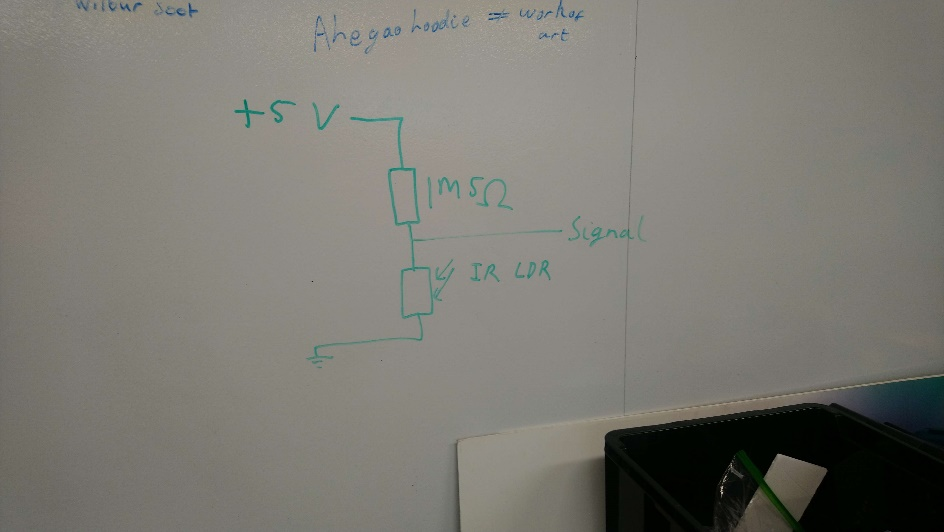 Wilbur Soot
Ahegao hoodie = work of
art
+5 V
1M5Ω
Signal
IR LDR